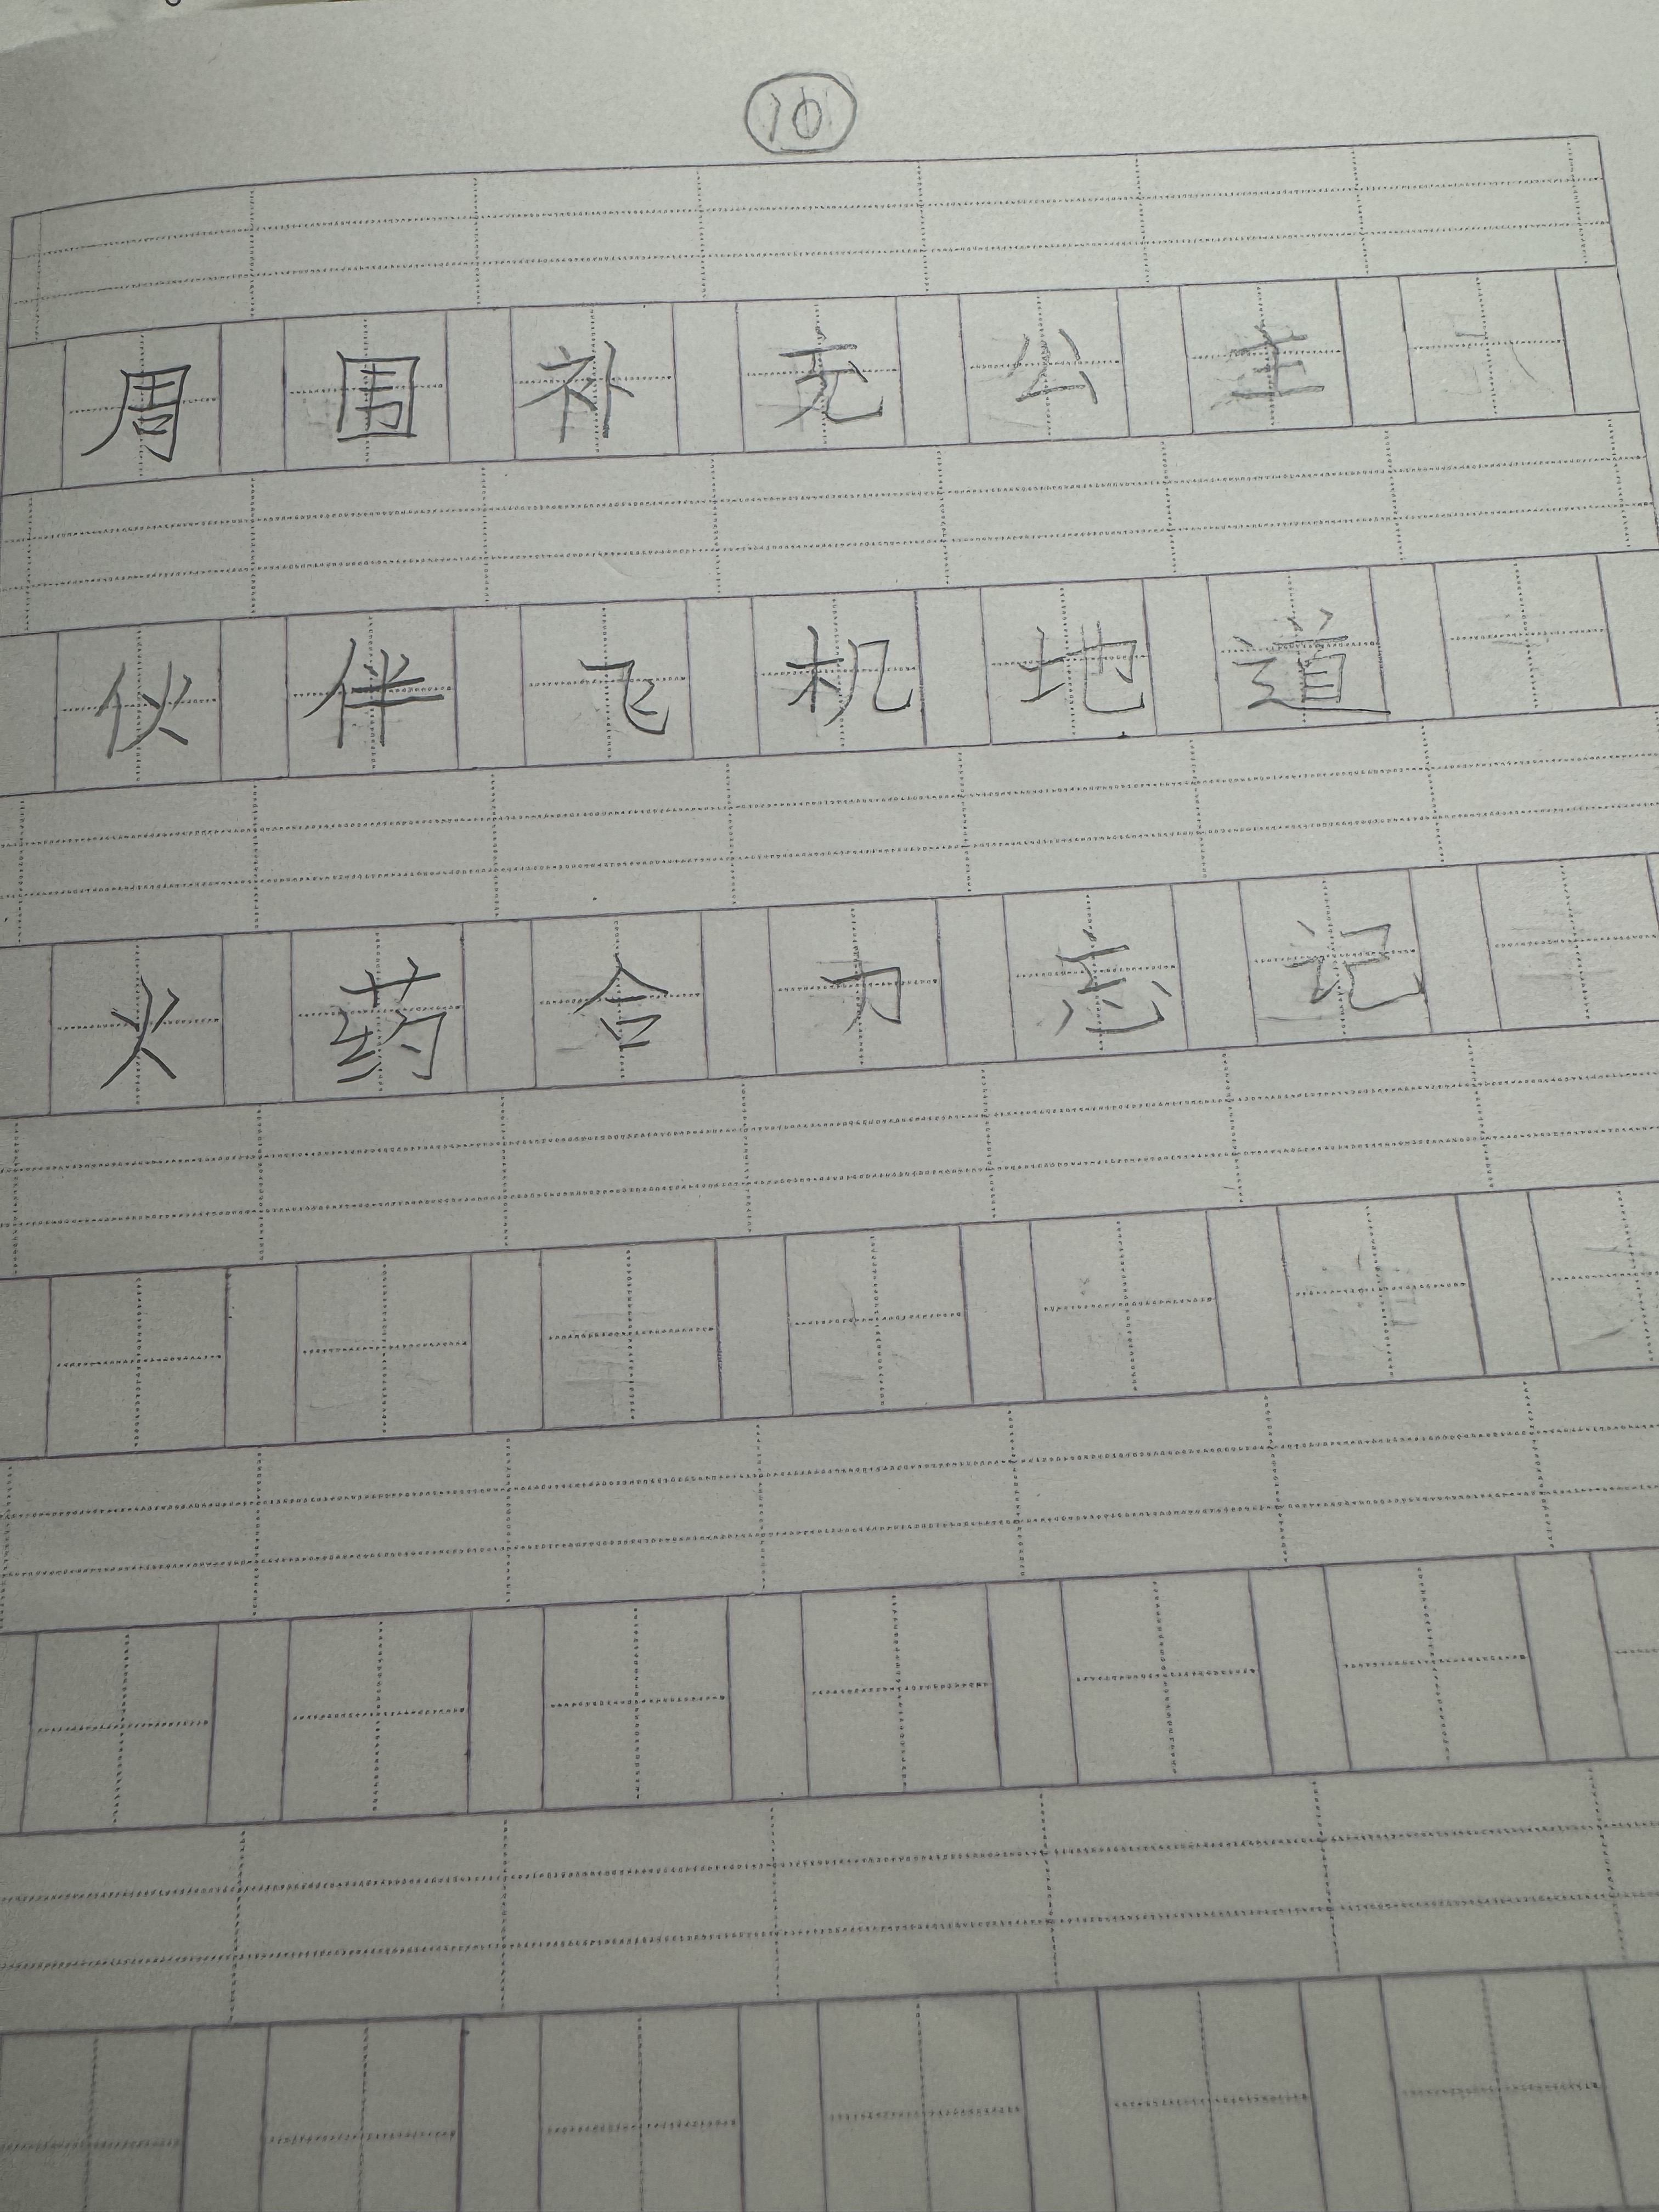 10
周围补充公主
伙伴飞机地道
火药合力忘记